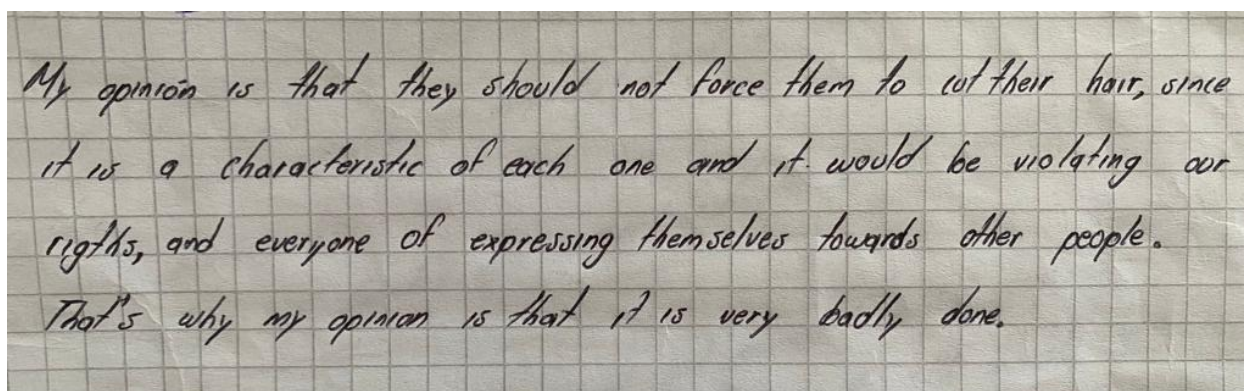 My opinión is that they should not force them to cut their hair, since
it is a characteristic of each one and it would be violating our
rigths, and everyone of expressing themselves towards other people.
That's why my opinion is that it is very badly done.